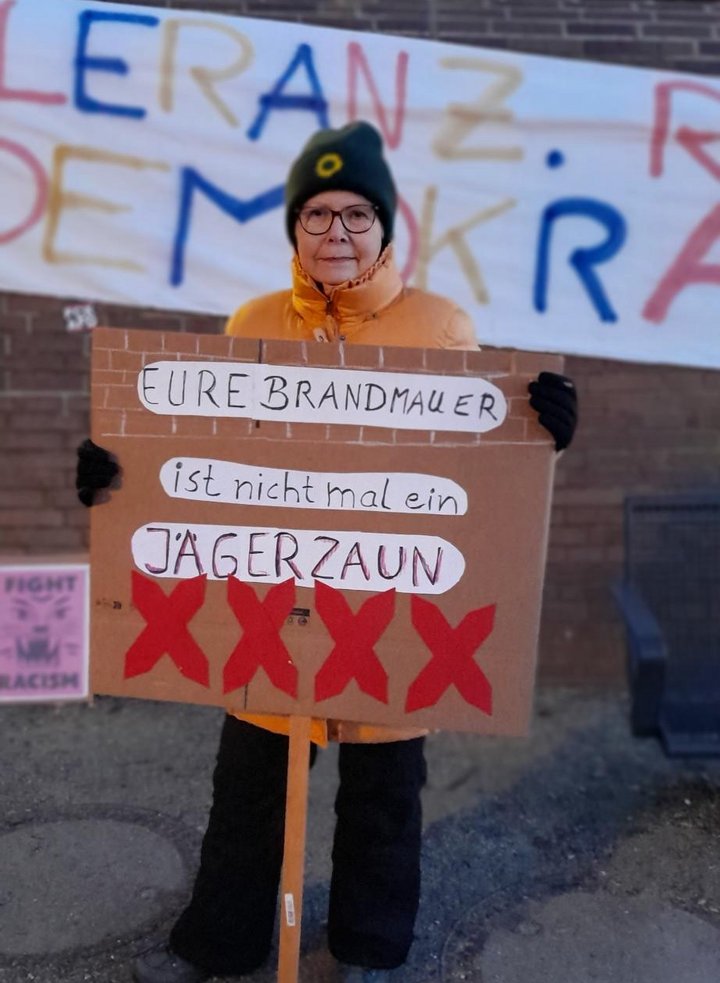 LERANZ. R
DEMOKRA
EURE BRANDMAUER
ist nicht mal ein
JÄGERZAUN
XXXX
FIGHT
RACISM